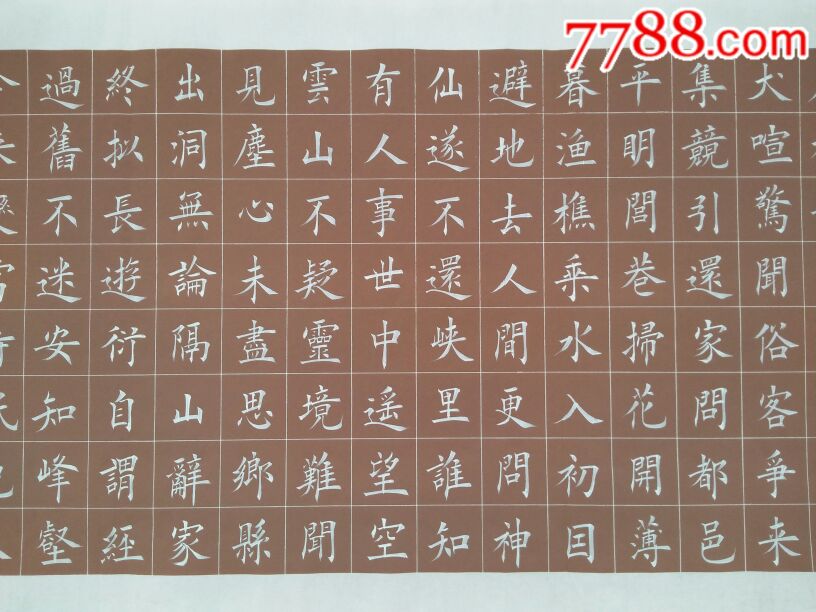 7788.com
犬喧驚聞俗客爭来
集競引還家問都邑
平眀閭巷掃花開薄
暮渔樵乘水入初囙
避地去人間更問神
仙遂不還峽里誰知
有人事世中遥望空
雲山不疑靈境難聞
見塵心未盡思鄉縣
出洞無論隔山辭家
終拟長遊衍自謂經
過舊不迷安知峰壑